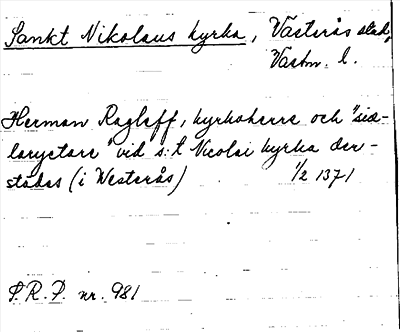 Sankt Nikolaus kyrka, Västerås stad,
Vastm. l.
Herman Ragleff, kyrkoherre och "siæ-
laryctare" vid s:t Nicolai kyrka der-
städes (i Westerås) 1/2 1371
S.R.P. nr. 981